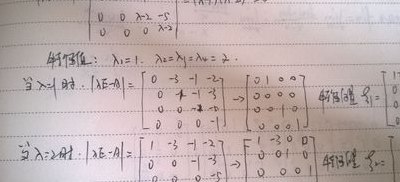 0 0 λ-2 -5
0 0 0 λ-2
特征值: λ₁=1. λ₂=λ₃=λ₄=2.
当λ=1时. |λE-A|= [ 0 -3 -1 -2
0 -1 -1 -3
0 0 -1 -5
0 0 0 -1 ] → [ 0 1 0 0
0 0 0 0
0 0 1 0
0 0 0 1 ] 特征值 ξ₁=
当λ=2时. |λE-A|= [ 1 -3 -1 -2
0 0 -1 -3
0 0 0 -5 → [ 1 -3 0 0
0 0 1 0
0 0 0 1 特征值 ξ₂=